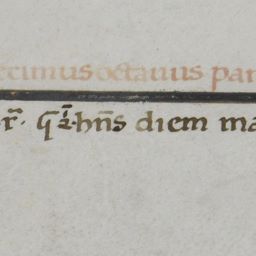 ecimus octauus par
r̃. q̃ 2̃. hñs diem ma